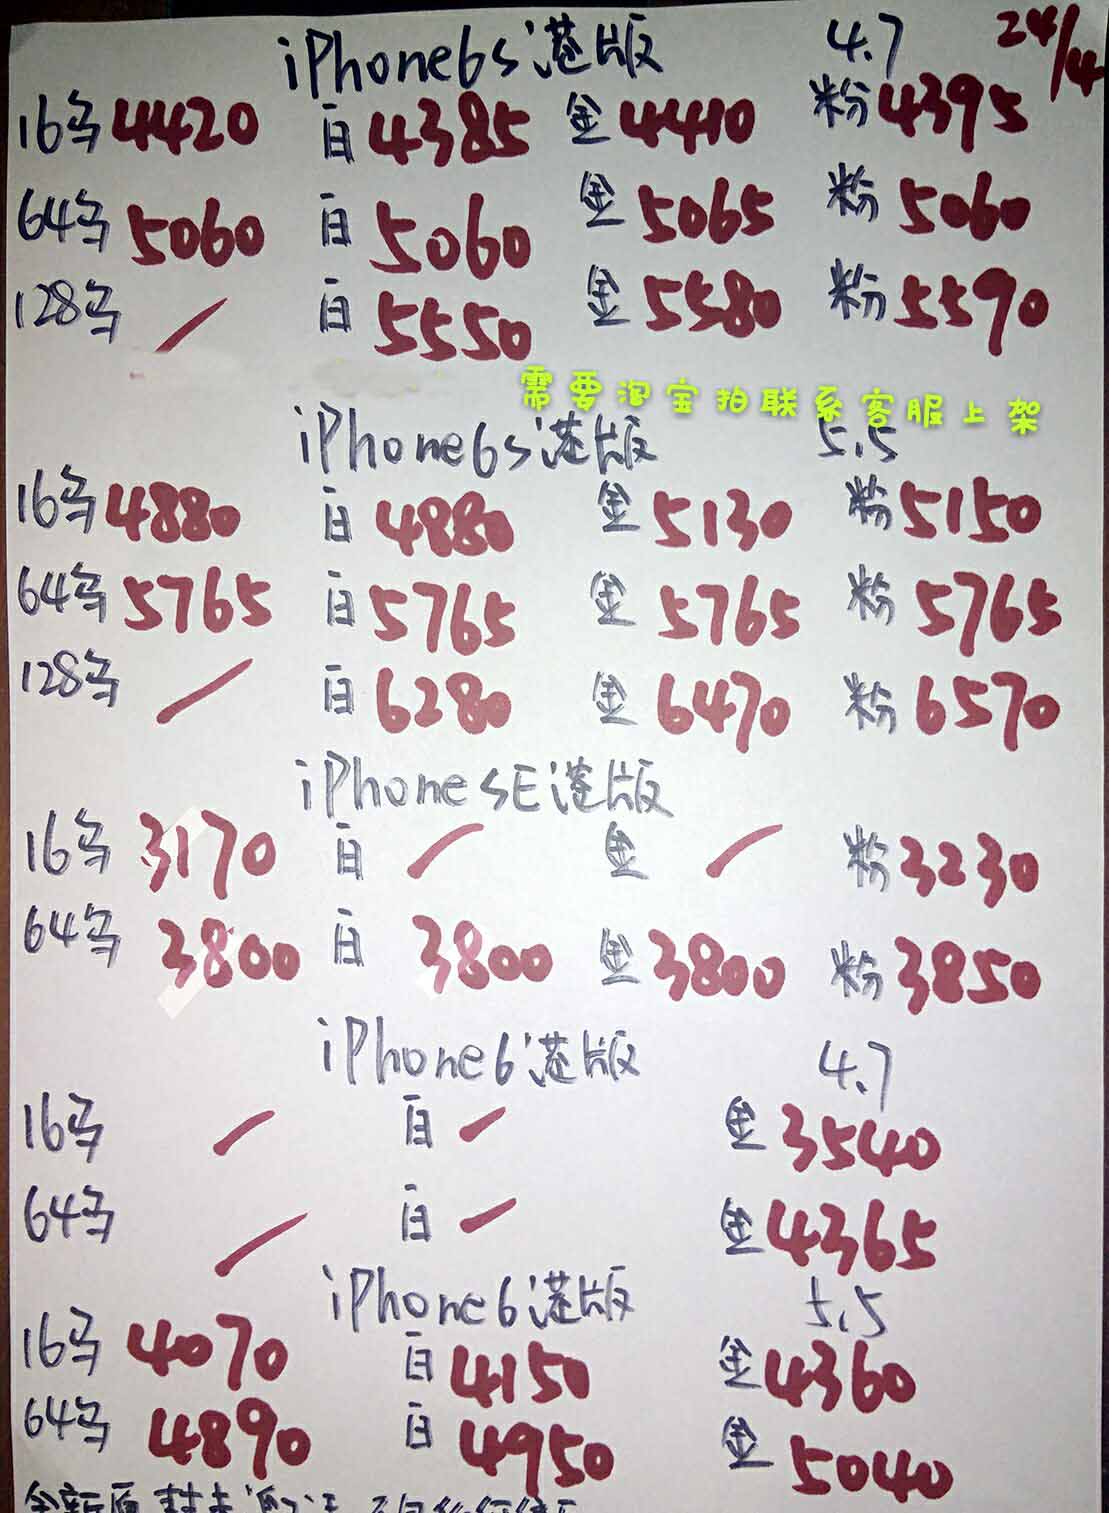 iPhone6s港版 4.7 24/4
16多4420 白4385 金4410 粉4395
64多5060 白5060 金5065 粉5060
128多/ 白5550 金5580 粉5590
需要淘宝拍联系客服上架
iPhone6s港版 5.5
16多4880 白4880 金5130 粉5150
64多5765 白5765 金5765 粉5765
128多/ 白6280 金6470 粉6570
iPhoneSE港版
16多3170 白/ 金/ 粉3230
64多3800 白3800 金3800 粉3850
iPhone6港版 4.7
16多/ 白/ 金3540
64多/ 白/ 金4365
iPhone6港版 5.5
16多4070 白4150 金4360
64多4890 白4950 金5040
全新原封未激活